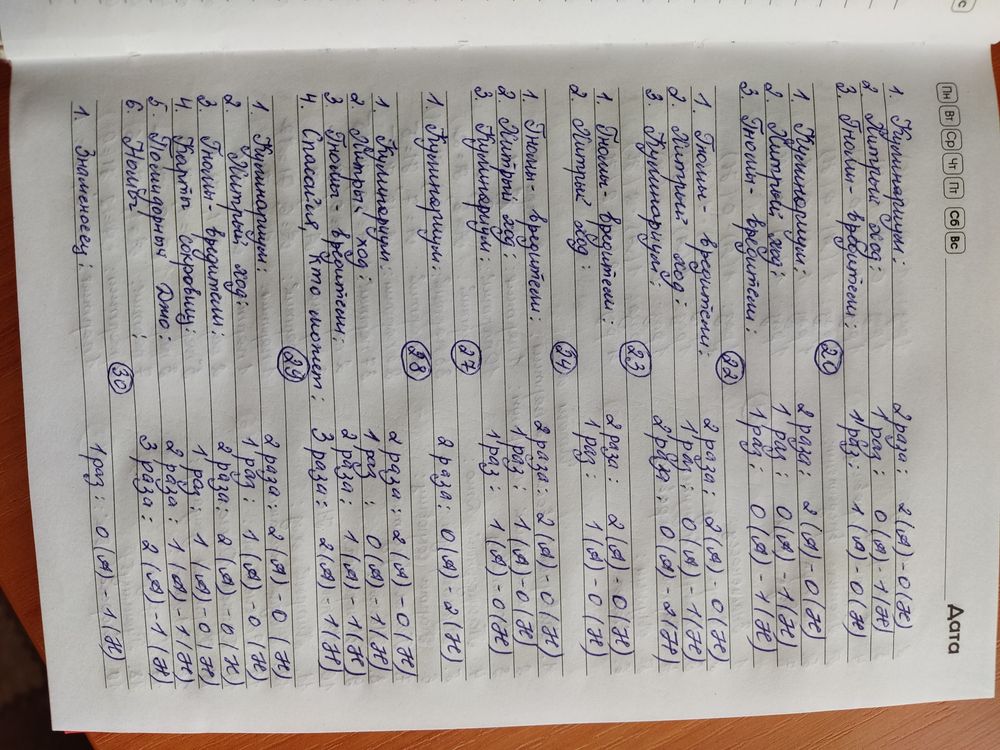 Пн Вт Ср Чт Пт Сб Вс Дата
1. Кулинариум: 2 раза: 2 (я) - 0 (ж)
2. Хитрый ход: 1 раз: 0 (я) - 1 (ж)
3. Гномы - вредители: 1 раз: 1 (я) - 0 (ж)
20
1. Кулинариум: 2 раза: 2 (я) - 0 (ж)
2. Хитрый ход: 1 раз: 0 (я) - 1 (ж)
3. Гномы - вредители: 1 раз: 0 (я) - 1 (ж)
22
1. Гномы - вредители: 2 раза: 2 (я) - 0 (ж)
2. Хитрый ход: 1 раз: 0 (я) - 1 (ж)
3. Кулинариум: 2 раза: 0 (я) - 2 (ж)
23
1. Гномы - вредители: 2 раза: 2 (я) - 0 (ж)
2. Хитрый ход: 1 раз: 1 (я) - 0 (ж)
24
1. Гномы - вредители: 2 раза: 2 (я) - 0 (ж)
2. Хитрый ход: 1 раз: 1 (я) - 0 (ж)
3. Кулинариум: 1 раз: 1 (я) - 0 (ж)
27
1. Кулинариум: 2 раза: 0 (я) - 2 (ж)
28
1. Кулинариум: 2 раза: 2 (я) - 0 (ж)
2. Хитрый ход: 1 раз: 0 (я) - 1 (ж)
3. Гномы - вредители: 2 раза: 1 (я) - 1 (ж)
4. Спасайся, кто может: 3 раза: 2 (я) - 1 (ж)
29
1. Кулинариум: 2 раза: 2 (я) - 0 (ж)
2. Хитрый ход: 1 раз: 1 (я) - 0 (ж)
3. Гномы - вредители: 2 раза: 2 (я) - 0 (ж)
4. Карта сокровищ: 1 раз: 1 (я) - 0 (ж)
5. Помидорный Джо: 2 раза: 1 (я) - 1 (ж)
6. : 3 раза: 2 (я) - 1 (ж)
30
1. Знаменосец: 1 раз: 0 (я) - 1 (ж)